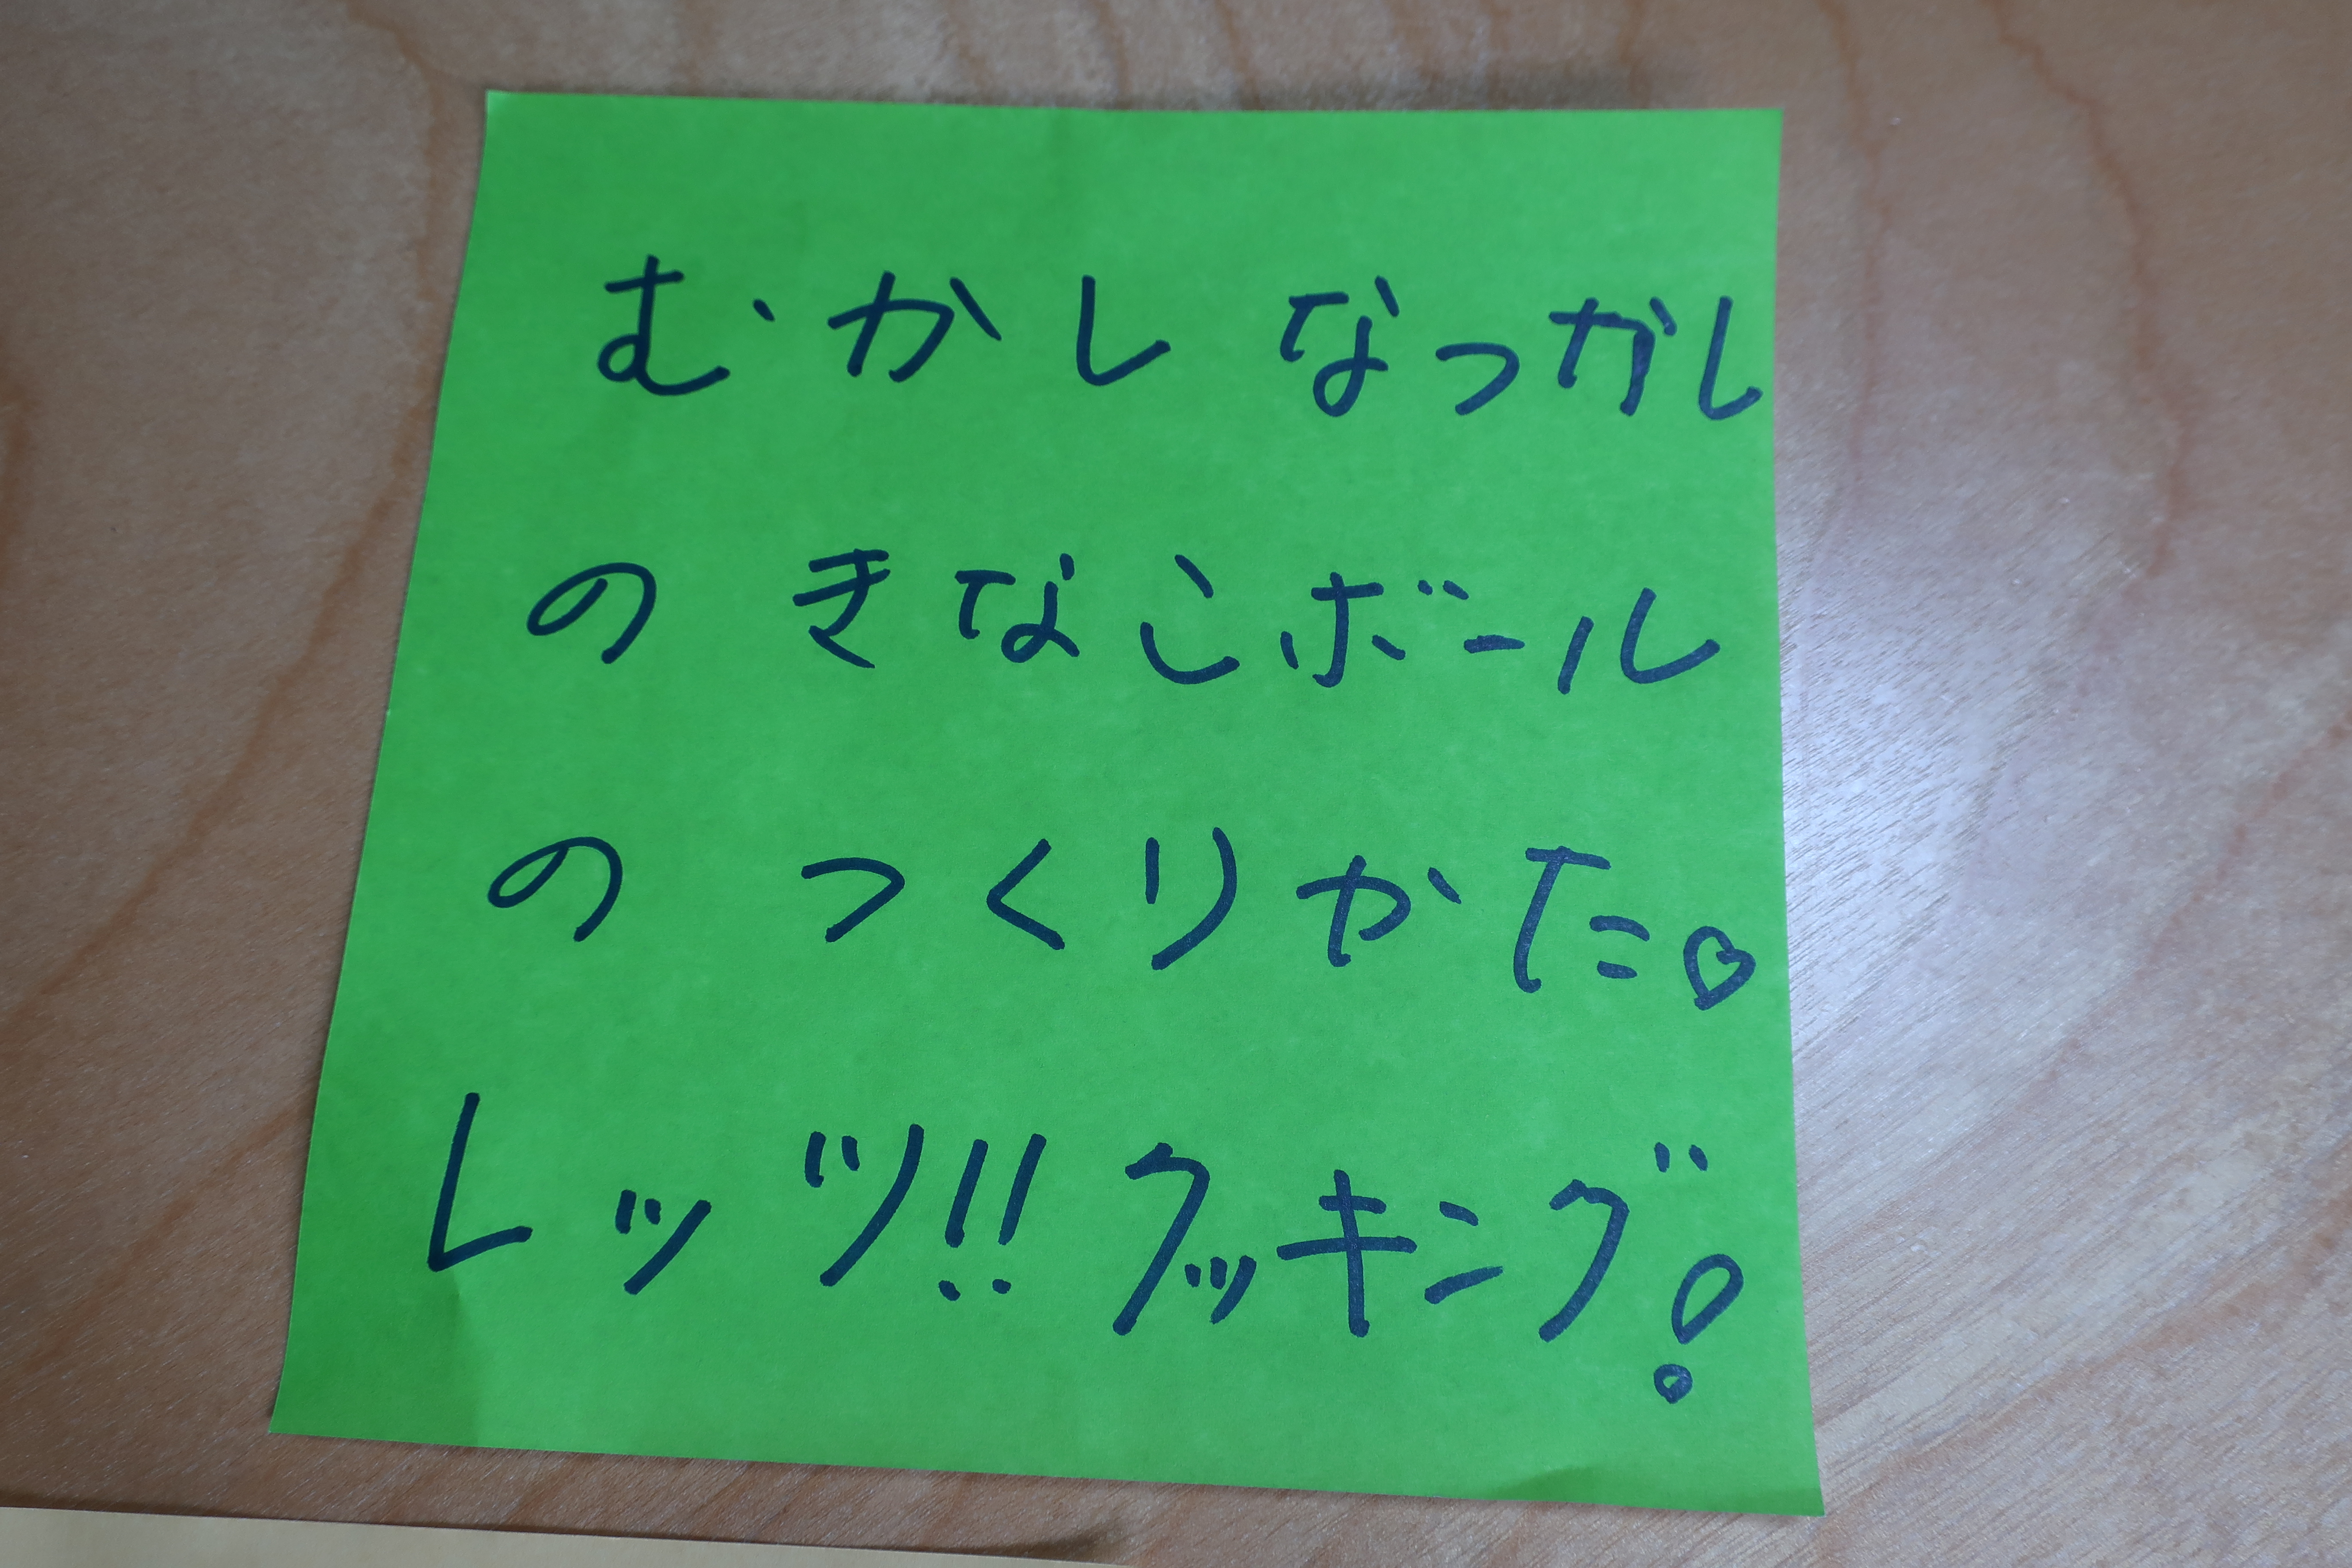 むかし なつがし
の きなこボール
の つくりかた♡
レッツ!! クッキング!